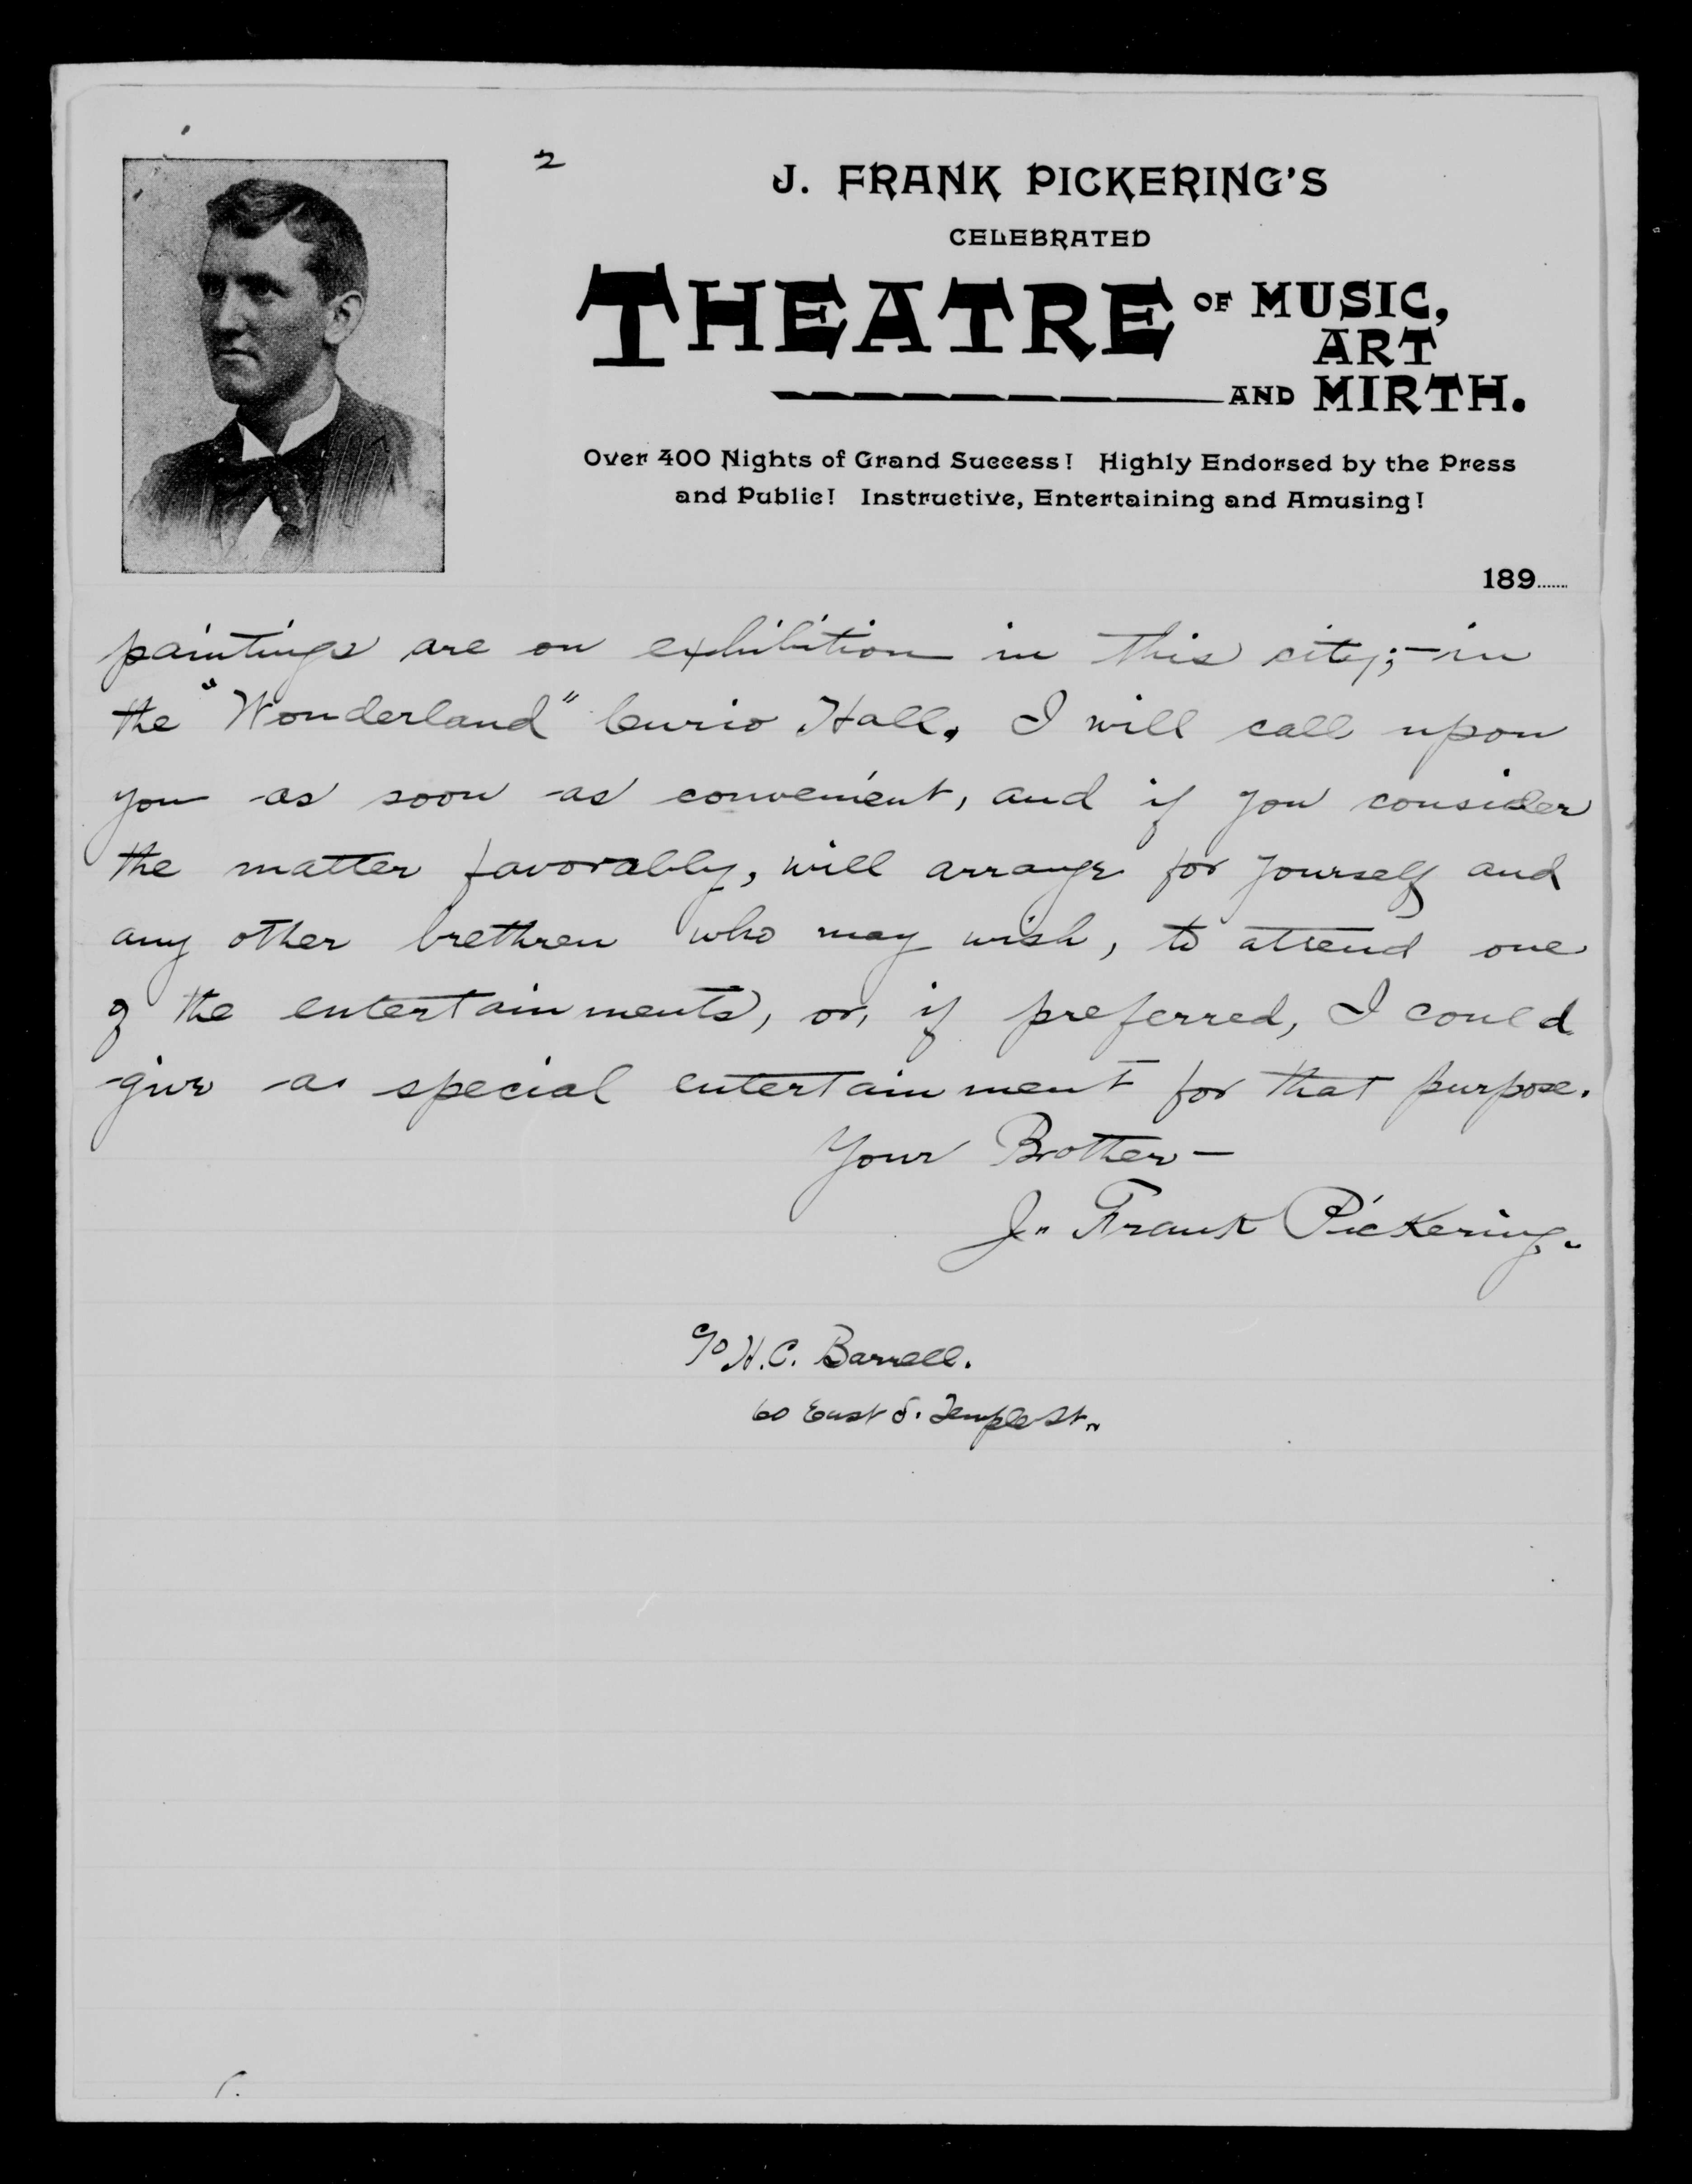 2
J. FRANK PICKERING'S
CELEBRATED
THEATRE OF MUSIC,
ART
AND MIRTH.
Over 400 Nights of Grand Success! Highly Endorsed by the Press
and Public! Instructive, Entertaining and Amusing!
189......
paintings are on exhibition in this city;—in
the "Wonderland" Curio Hall. I will call upon
you as soon as convenient, and if you consider
the matter favorably, will arrange for yourself and
any other brethren who may wish, to attend one
of the entertainments, or, if preferred, I could
give a special entertainment for that purpose.
Your Brother—
J. Frank Pickering.
c/o H.C. Barrell.
60 East S. Temple St.